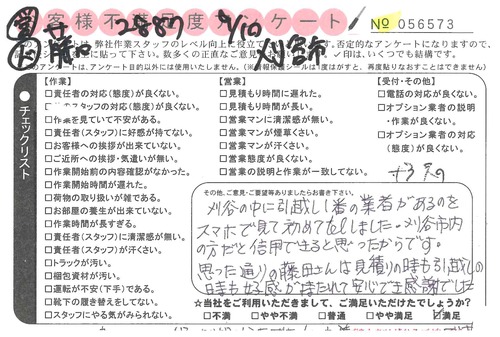 客様不満度アンケート № 056573
2887 9/10 刈谷市
のアンケートは、弊社作業スタッフのレベル向上に役立て
否定的なアンケートになりますので、
に貼って下さい。数多くの正直なご意見
✓印は、いくつでも結構です。
アンケートは、アンケート目的以外には使用いたしません。
再度貼りなおすことはできません)
チェックリスト
【作業】
□責任者の対応(態度)が良くない。
スタッフの対応(態度)が良くない。
□作業を見ていて不安がある。
□責任者(スタッフ)に好感が持てない。
□お客様への挨拶が出来ていない。
□ご近所への挨拶・気遣いが無い。
□作業開始前の内容確認がなかった。
□作業開始時間が遅れた。
□荷物の取り扱いが雑である。
□お部屋の養生が出来ていない。
□作業時間が長すぎる。
□責任者(スタッフ)に清潔感が無い。
□責任者(スタッフ)が汗くさい。
□トラックが汚い。
□梱包資材が汚い。
□運転が不安(下手)である。
□靴下の履き替えをしてない。
□スタッフにやる気がみられない。
【営業】
□見積もり時間に遅れた。
□見積もり時間が長い。
□営業マンに清潔感が無い。
□営業マンが煙草くさい。
□営業マンが汗くさい。
□営業態度が良くない。
□営業の説明と作業が一致してない。
【受付・その他】
□電話の対応が良くない。
□オプション業者の説明
・作業が良くない。
□オプション業者の対応
(態度)が良くない。
その他、ご意見・ご要望等ありましたらお書き下さい。
刈谷の中に引越し1番の業者があるのを
スマホで見て初めてtelしました。刈谷市内
の方だと信用できると思ったからです。
思った通りの藤田さんは見積りの時も引越しの
時も好感が持たれて安心でき感謝でした
☆当社をご利用いただきまして、ご満足いただけたでしょうか?
□不満 □やや不満 □普通 □やや満足 ☑満足